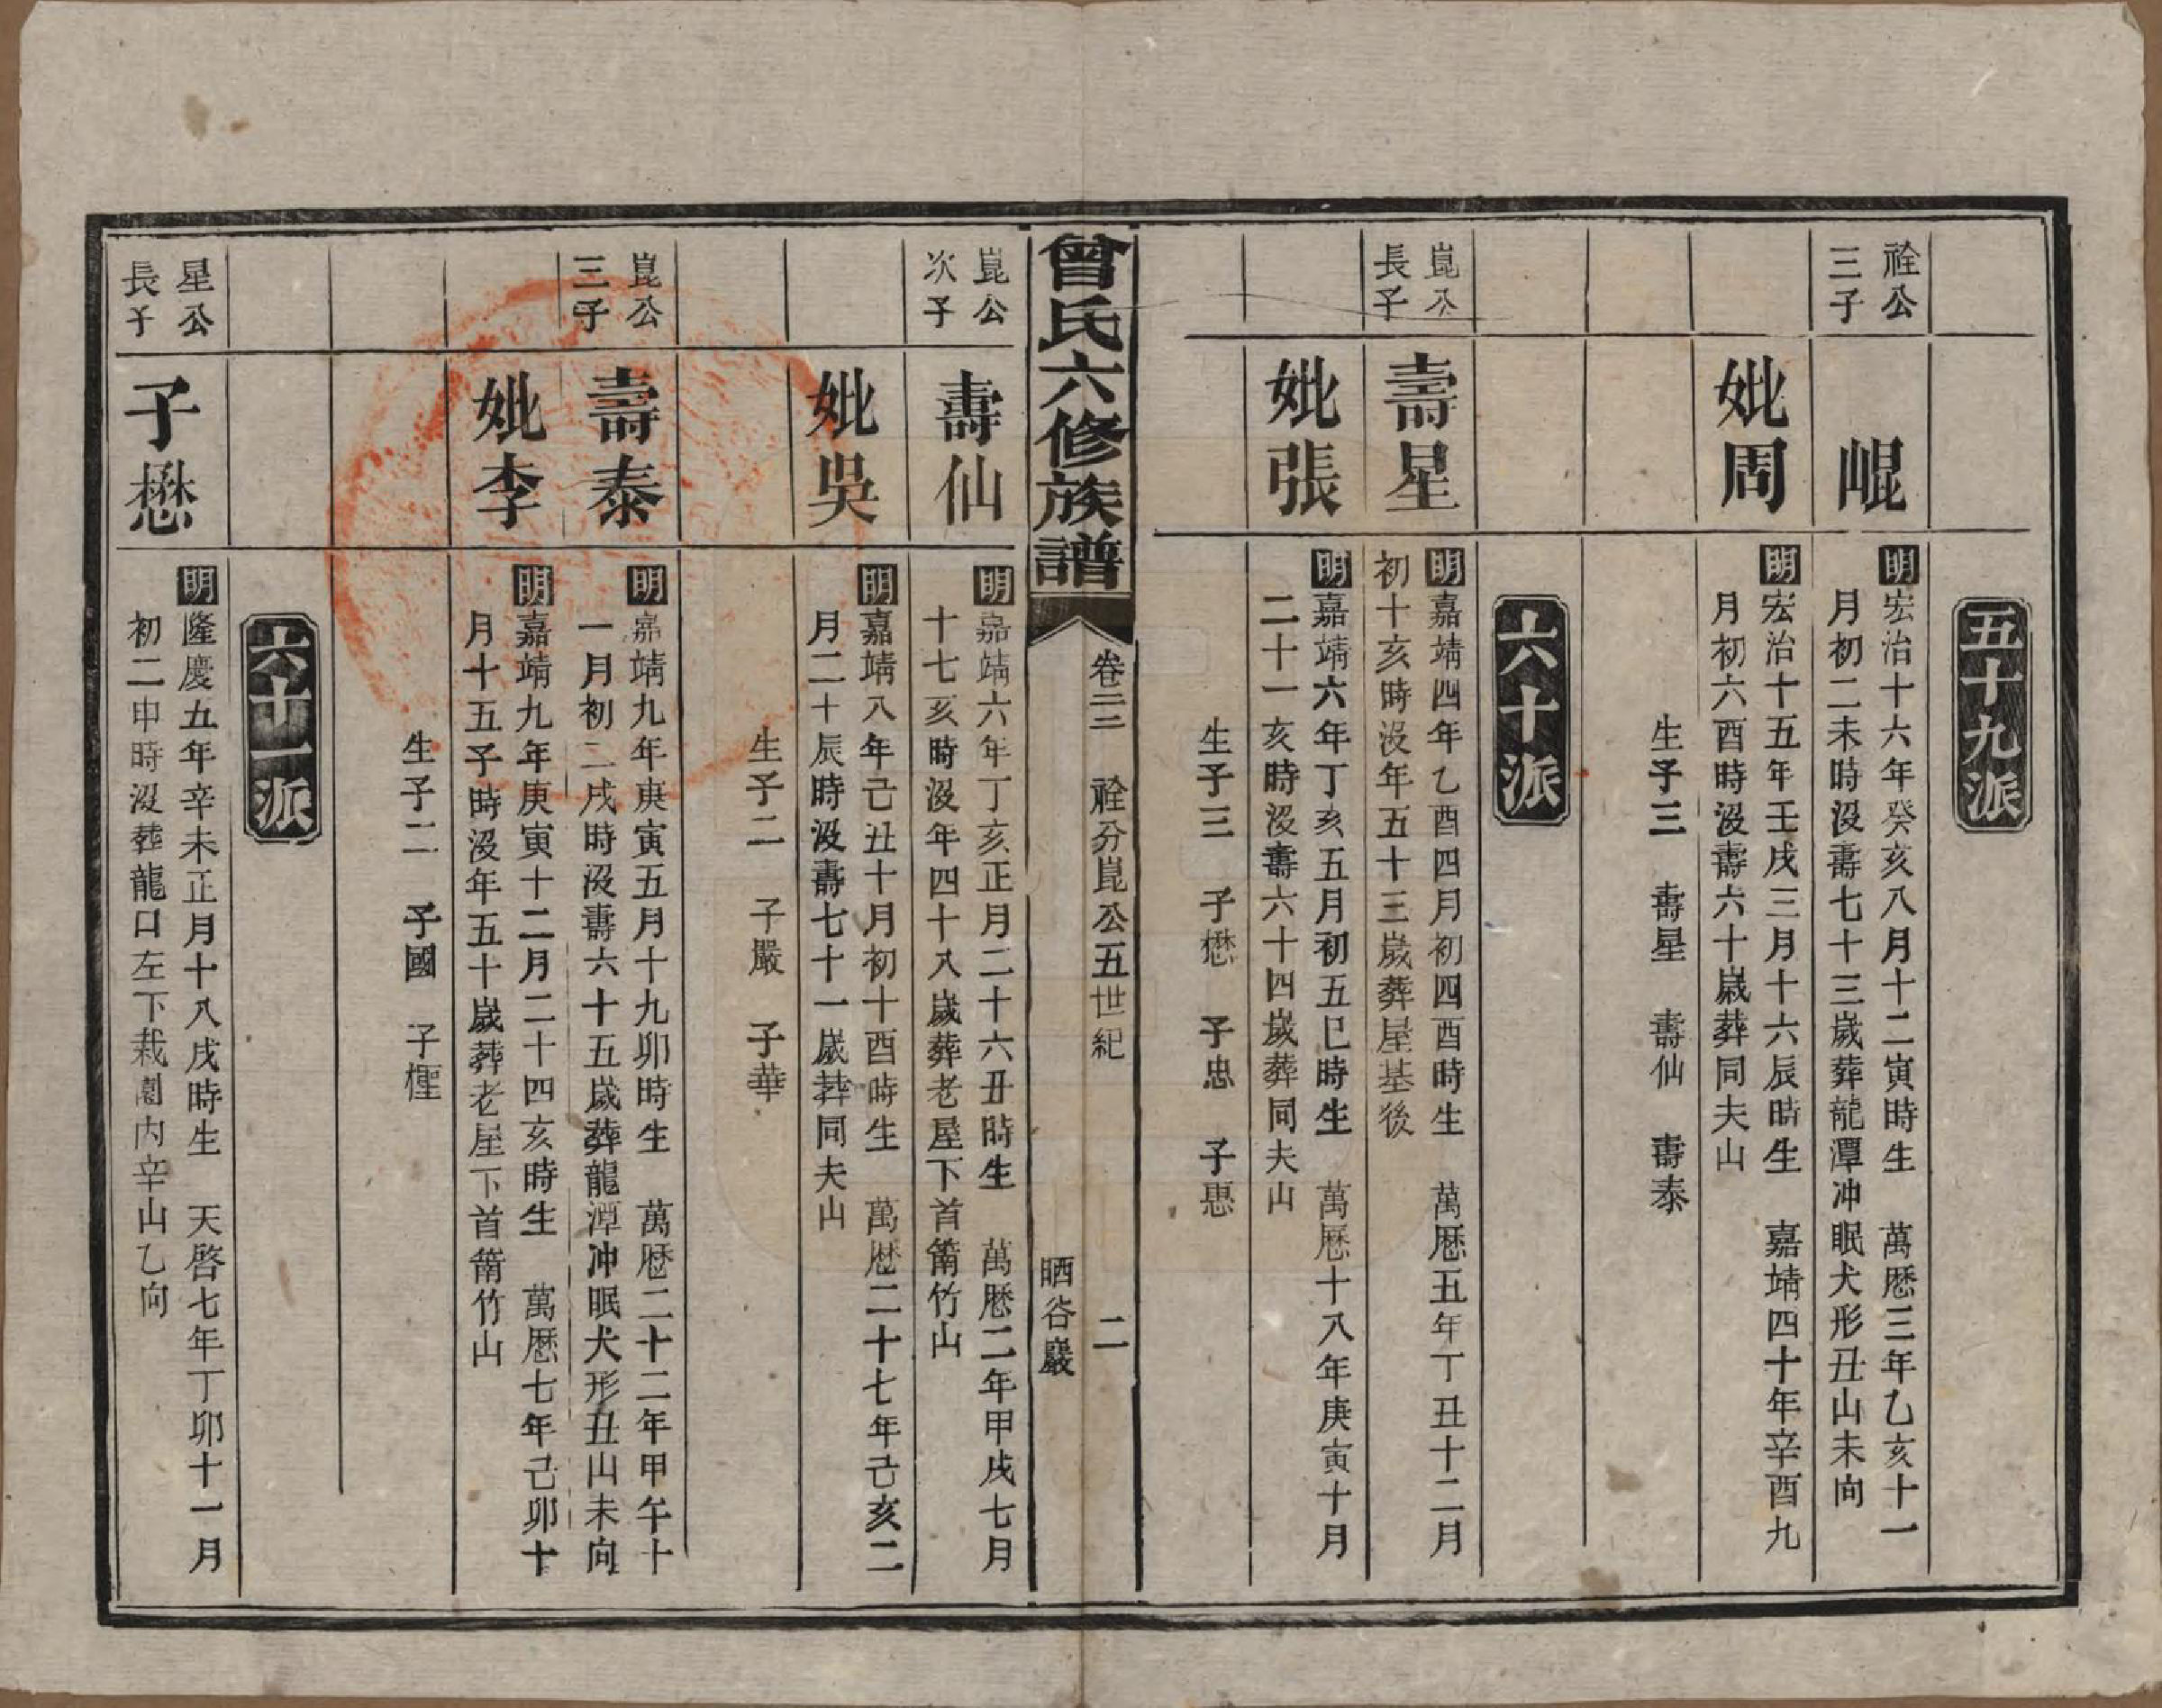 五十九派
祿公
三子
崐
明宏治十六年癸亥八月十二寅時生　萬歷三年乙亥十一
月初二未時沒壽七十三歲葬龍潭冲眠犬形丑山未向
妣周
明宏治十五年壬戌三月十六辰時生　嘉靖四十年辛酉九
月初六酉時沒壽六十歲葬同夫山
生子三　壽星　壽仙　壽泰
六十派
崑公
長子
壽星
明嘉靖四年乙酉四月初四酉時生　萬歷五年丁丑十二月
初十亥時沒年五十三歲葬屋基後
妣張
明嘉靖六年丁亥五月初五巳時生　萬歷十八年庚寅十月
二十一亥時沒壽六十四歲葬同夫山
生子三　子懋　子忠　子惠
曾氏六修族譜
卷三二　祿分崑公五世紀　二
晒谷巖
崑公
次子
壽仙
明嘉靖六年丁亥正月二十六丑時生　萬歷二年甲戌七月
十七亥時沒年四十八歲葬老屋下首筩竹山
妣吳
明嘉靖八年己丑十月初十酉時生　萬歷二十七年己亥二
月二十辰時沒壽七十一歲葬同夫山
生子二　子嚴　子華
崑公
三子
壽泰
明嘉靖九年庚寅五月十九卯時生　萬歷二十二年甲午十
一月初二戌時沒壽六十五歲葬龍潭冲眠犬形丑山未向
妣李
明嘉靖九年庚寅十二月二十四亥時生　萬歷七年己卯十
月十五子時沒年五十歲葬老屋下首筩竹山
生子二　子國　子檉
六十一派
星公
長子
子懋
明隆慶五年辛未正月十八戌時生　天啓七年丁卯十一月
初二申時沒葬龍口左下栽園內辛山乙向